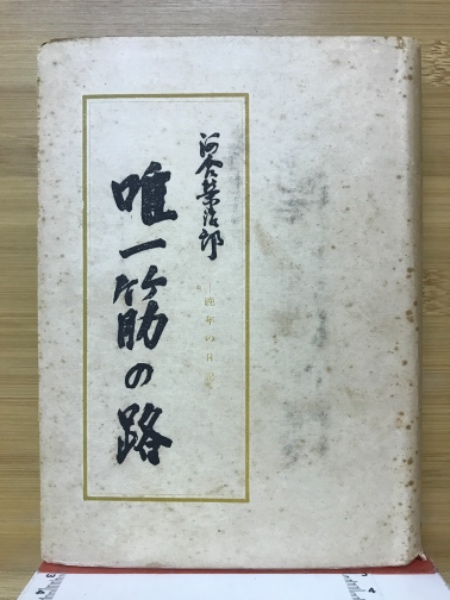 河合榮治郎
唯一筋の路
—晩年の日記—